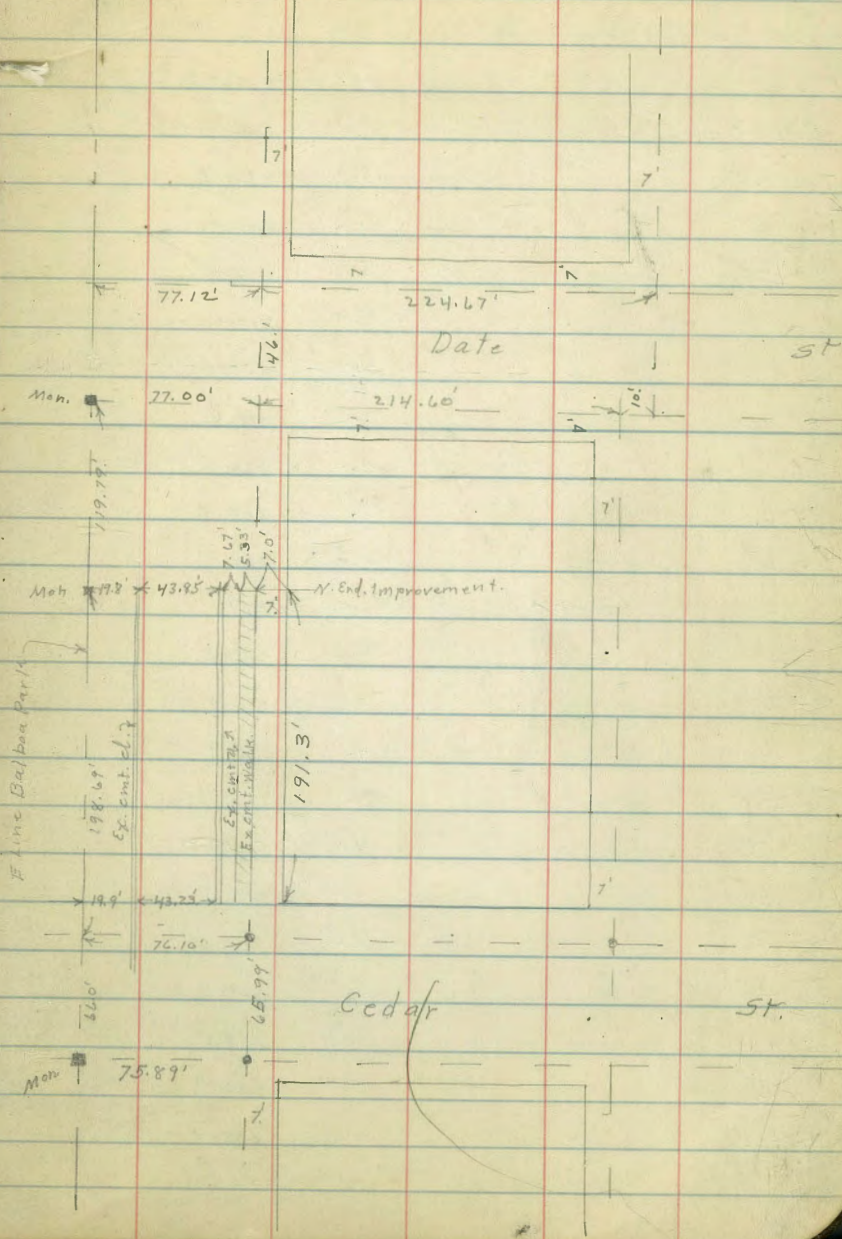 7'
7'
7
7'
77.12'
224.67'
46.'
Date
St
Mon.
77.00'
214.60'
10.'
7'
4'
119.79'
7'
7.67'
5.33'
7.0'
Mon
19.8'
43.85'
7.
N. End. Improvement.
E Line Balboa Park
198.69'
Ex. cmt.
Ex. cmt
Ex. cmt. Walk.
191.3'
7'
19.9'
43.23'
76.10'
65.99'
Cedar
St.
Mon
75.89'
7.